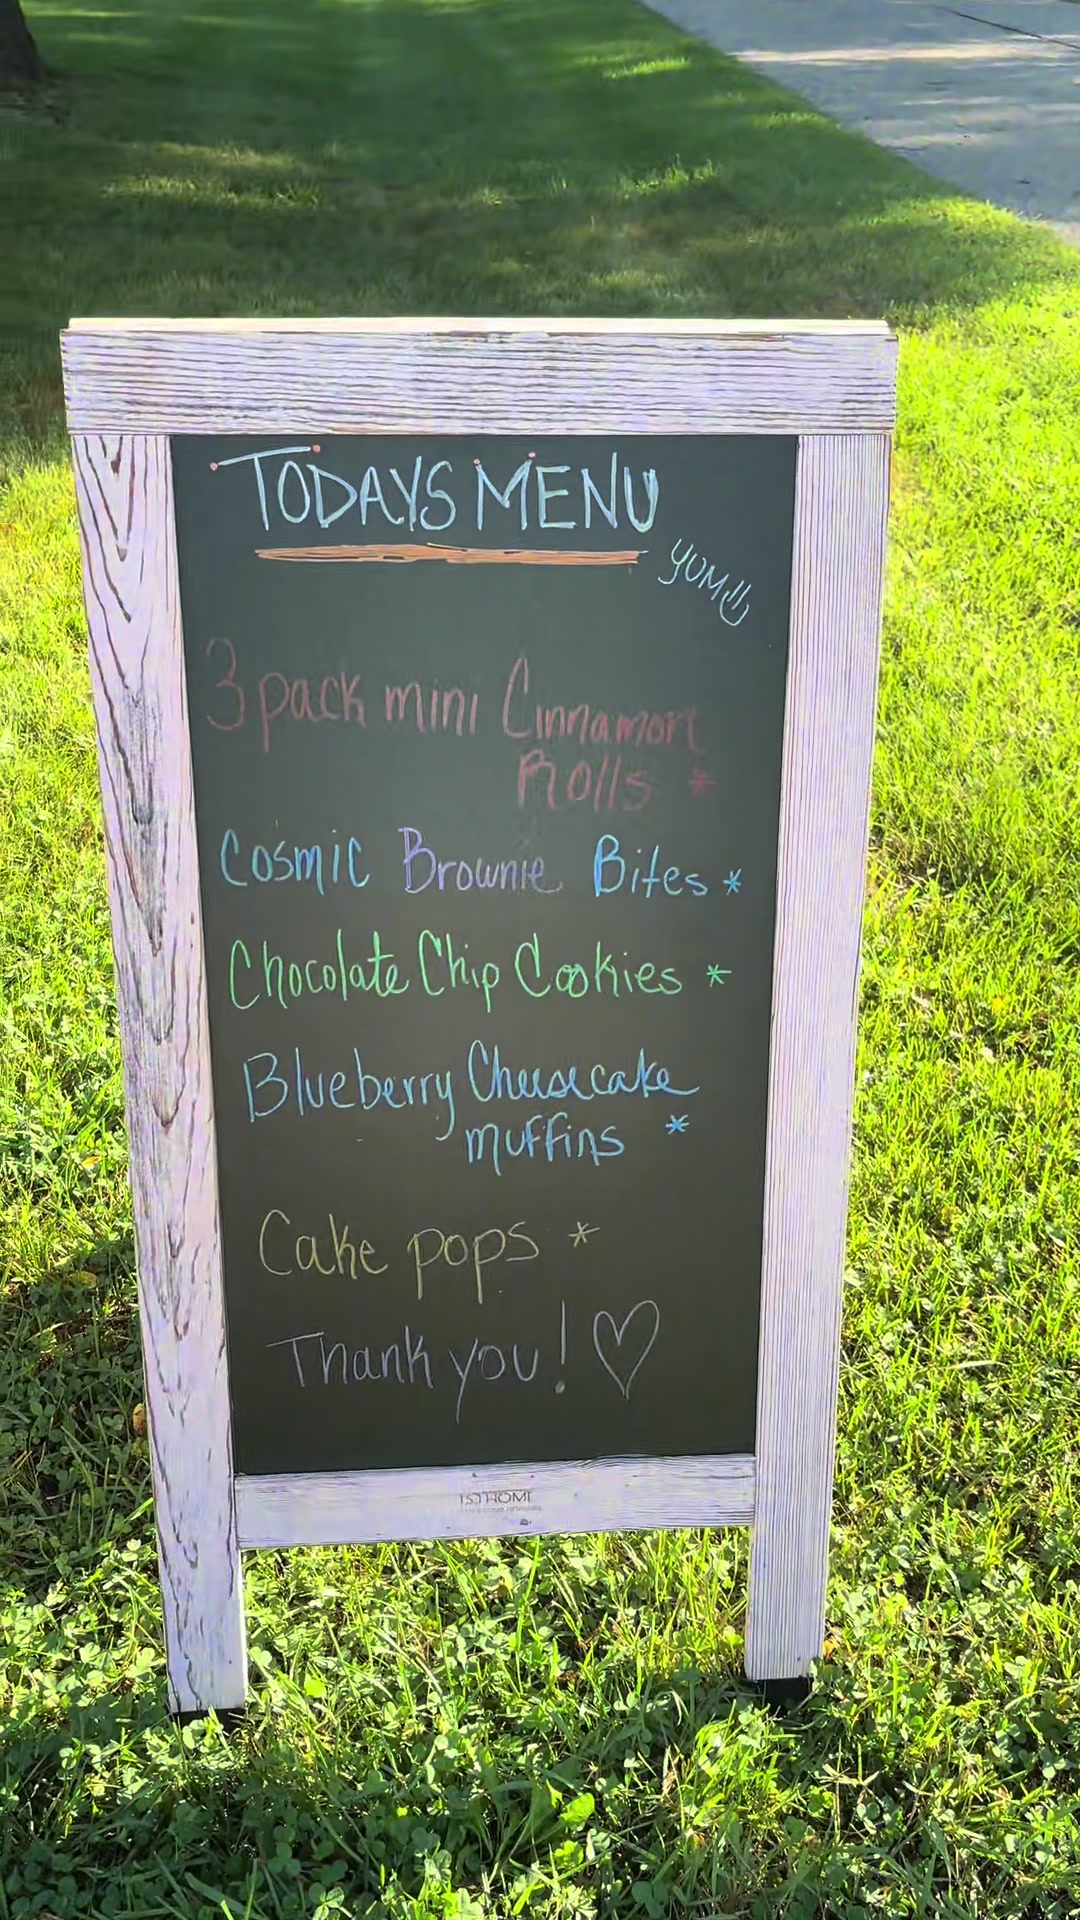 TODAYS MENU
YUM
3 pack mini Cinnamon
Rolls *
Cosmic Brownie Bites *
Chocolate Chip Cookies *
Blueberry Cheesecake
muffins *
Cake pops *
Thank you! ♡